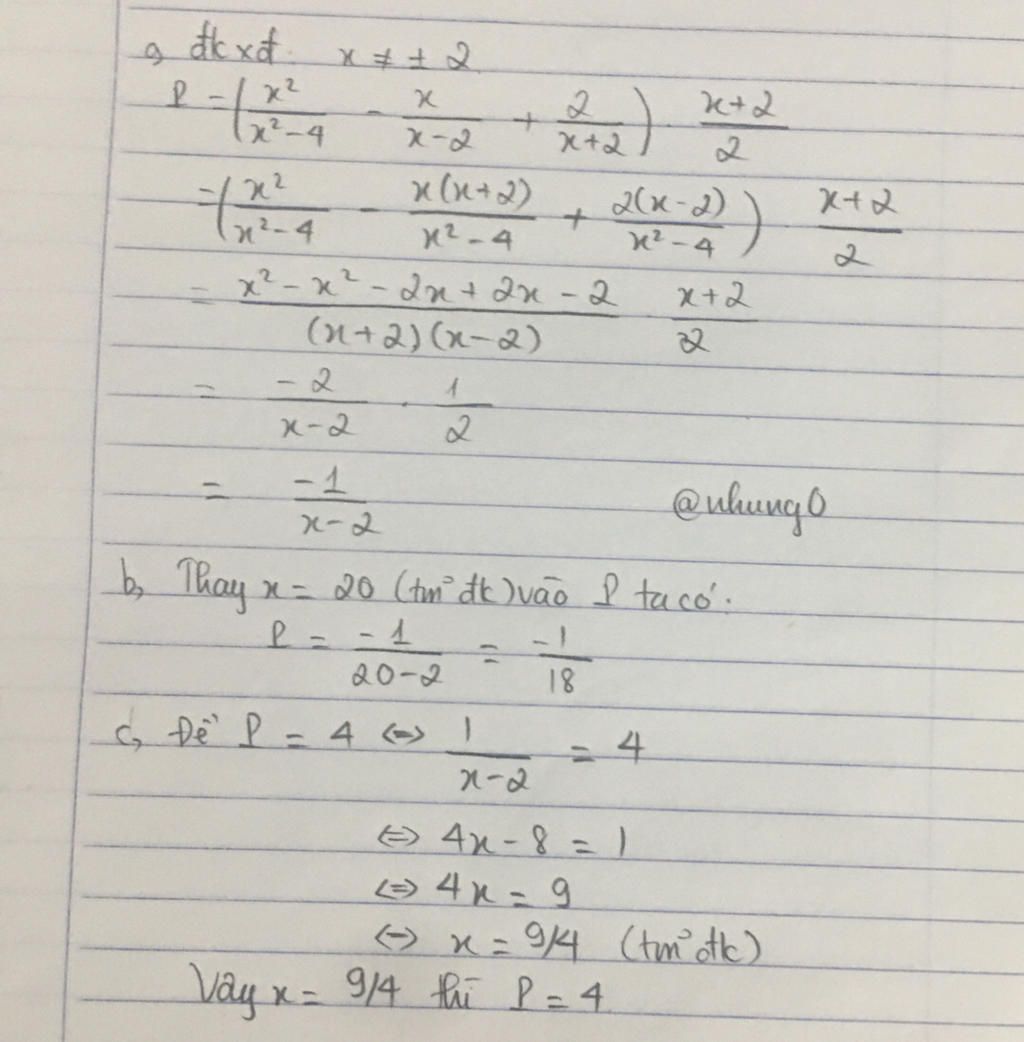 a, đkxđ: x ≠ ± 2
P = (x²/(x²-4) - x/(x-2) + 2/(x+2)) . (x+2)/2
= (x²/(x²-4) - x(x+2)/(x²-4) + 2(x-2)/(x²-4)) . (x+2)/2
= (x² - x² - 2x + 2x - 2)/((x+2)(x-2)) . (x+2)/2
= -2/(x-2) . 1/2
= -1/(x-2)
@nhung0
b, Thay x = 20 (tm đk) vào P ta có:
P = -1/(20-2) = -1/18
c, Để P = 4 <=> 1/(x-2) = 4
<=> 4x - 8 = 1
<=> 4x = 9
<=> x = 9/4 (tm đk)
Vậy x = 9/4 thì P = 4